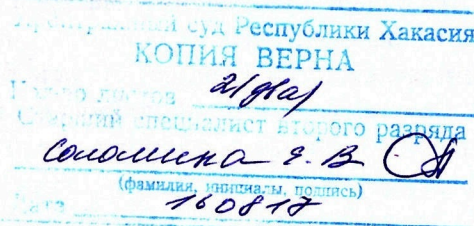 Арбитражный суд Республики Хакасия
КОПИЯ ВЕРНА
листов 2(два)
Старший специалист второго разряда
Соломина Е. В
(фамилия, инициалы, подпись)
Дата 160817